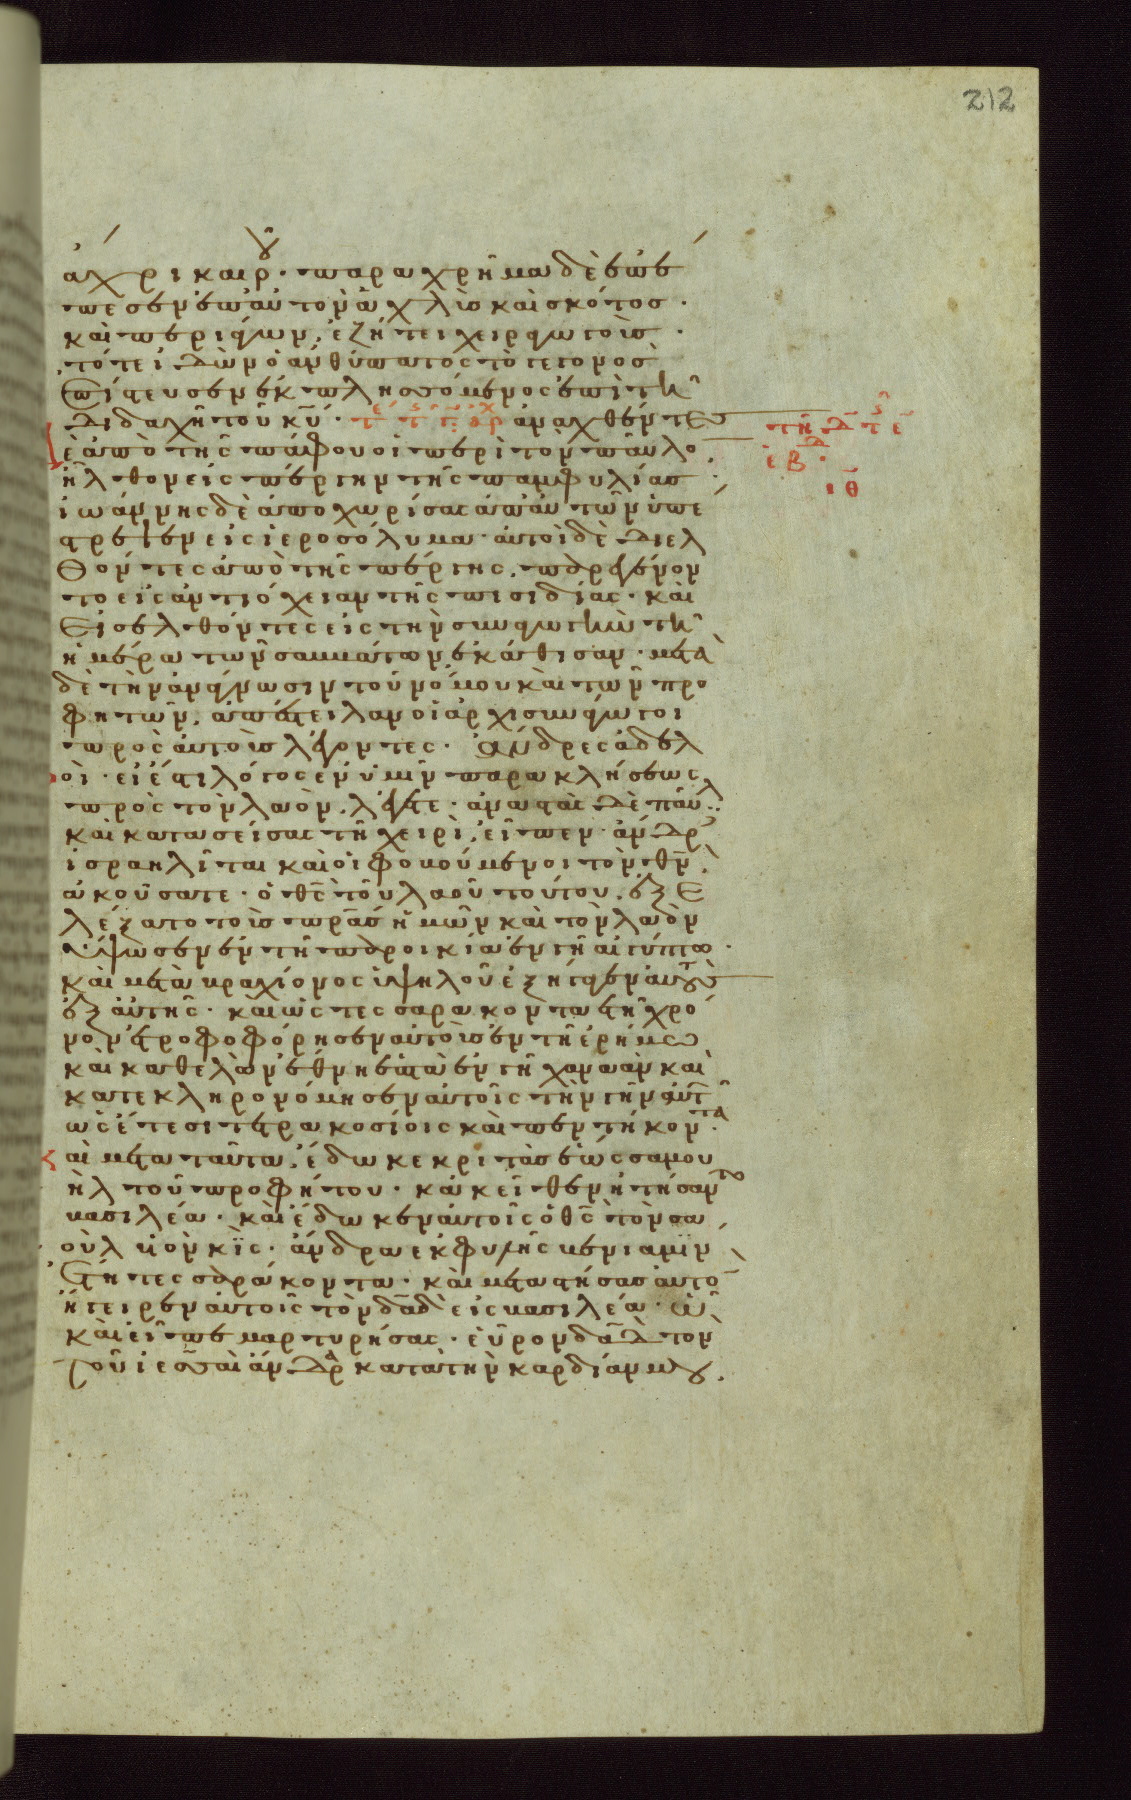 212
ἄχρι καιροῦ· παραχρῆμα δὲ ἐπέ
πεσεν ἐπ αὐτὸν ἀχλὺς καὶ σκότος·
καὶ περιάγων, ἐζήτει χειραγωγούς·
τότε ἰδὼν ὁ ἀνθύπατος τὸ γεγονὸς
ἐπίστευσεν ἐκπλησσόμενος ἐπὶ τῆ
διδαχῆ τοῦ κυ· ἀναχθέντες
δὲ ἀπὸ τῆς πάφου οἱ περὶ τὸν παῦλον,
ἦλθον εἰς πέργην τῆς παμφυλίας·
ἰωάννης δὲ ἀποχωρήσας ἀπ αὐτῶν ὑπέ
στρεψεν εἰς ἱεροσόλυμα· αὐτοὶ δὲ διελ
θόντες ἀπὸ τῆς πέργης, παρεγένον
το εἰς ἀντιόχειαν τῆς πισιδίας· καὶ
εἰσελθόντες εἰς τὴν συναγωγὴν τῆ
ἡμέρα τῶν σαββάτων ἐκάθισαν· μετὰ
δὲ τὴν ἀνάγνωσιν τοῦ νόμου καὶ τῶν προ
φητῶν, ἀπέστειλαν οἱ ἀρχισυνάγωγοι
πρὸς αὐτοὺς λέγοντες· ἄνδρες ἀδελ
οὶ· εἰ ἔστι λόγος ἐν ὑμῖν παρακλήσεως
πρὸς τὸν λαὸν, λέγετε· ἀναστὰς δὲ παῦλ
καὶ κατασείσας τῆ χειρὶ, εἶπεν· ἄνδρ
ἰσραηλῖται καὶ οἱ φοβούμενοι τὸν θν,
ἀκούσατε· ὁ θς τοῦ λαοῦ τούτου, ἐξε
λέξατο τοὺς πρας ἡμῶν καὶ τὸν λαὸν
ὕψωσεν ἐν τῆ παροικία ἐν γῆ αἰγύπτω·
καὶ μετὰ βραχίονος ὑψηλοῦ ἐξήγαγεν αὐτοὺς
ἐξ αὐτῆς· καὶ ὡς τεσσαρακονταετῆ χρό
νον ἐτροφοφόρησεν αὐτοὺς ἐν τῆ ἐρήμω
καὶ καθελὼν ἔθνη ἑπτὰ ἐν γῆ χαναὰν καὶ
κατεκληρονόμησεν αὐτοῖς τὴν γῆν αὐτῶ
ὡς ἔτεσι τετρακοσίοις καὶ πεντήκοντα·
αὶ μετὰ ταῦτα, ἔδωκε κριτὰς ἕως σαμου
ὴλ τοῦ προφήτου· κἀκεῖθεν ἠτήσαντο
βασιλέα· καὶ ἔδωκεν αὐτοῖς ὁ θς τὸν σα
οὺλ υἱὸν κὶς· ἄνδρα ἐκ φυλῆς βενιαμὶν
ἔτη τεσσαράκοντα· καὶ μεταστήσας αὐτὸ
ἤγειρεν αὐτοῖς τὸν δαδ εἰς βασιλέα· ὧ
καὶ εἶπε μαρτυρήσας· εὗρον δαδ τὸν
τοῦ ἰεσσαὶ ἄνδρα κατὰ τὴν καρδίαν μου,